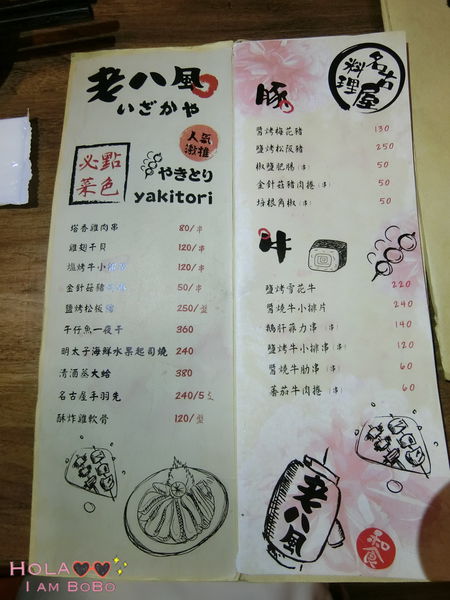 老八風
いざかや
人氣
激推
必點
菜色
やきとり
yakitori
塔香雞肉串 80/串
雞翅干貝 120/串
塩烤牛小 120/串
金針菇豬 50/串
鹽烤松板豬 250/盤
午仔魚一夜干 360
明太子海鮮水果起司燒 240
清酒蒸大蛤 380
名古屋手羽先 240/5支
酥炸雞軟骨 120/盤
名古屋
料理
豚
醬烤梅花豬 130
鹽烤松阪豬 250
椒鹽肥腸(串) 50
金針菇豬肉捲(串) 50
培根角椒(串) 50
牛
鹽烤雪花牛 220
醬燒牛小排片 240
鵝肝菲力串(串) 140
鹽烤牛小排串(串) 120
醬燒牛肋串(串) 60
蕃茄牛肉捲(串) 60
老八風
和食
HOLA
I AM BOBO